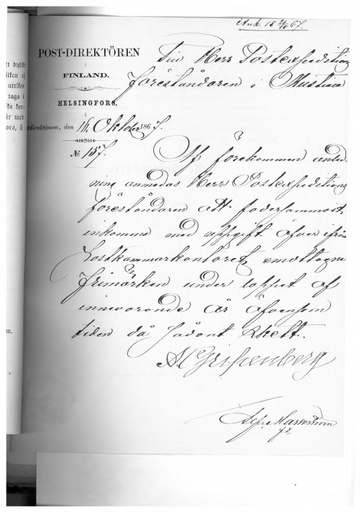 Ank. 18 /67.
POST-DIREKTÖREN
I
FINLAND.
HELSINGFORS,
direktionen, den 14 Oktober 1867.
№ 157.
Till Herr Postexpeditions
föreståndaren i Mustiala
Af förekommen anled-
ning anmodas Herr Postexpeditions
föreståndaren att fodersammast
inkomma med uppgift öfver ifrån
Postkammarkontoret emottagne
frimärken under loppet af
innevarande år äfvensom
tiden då sådant skett.
A Gripenberg